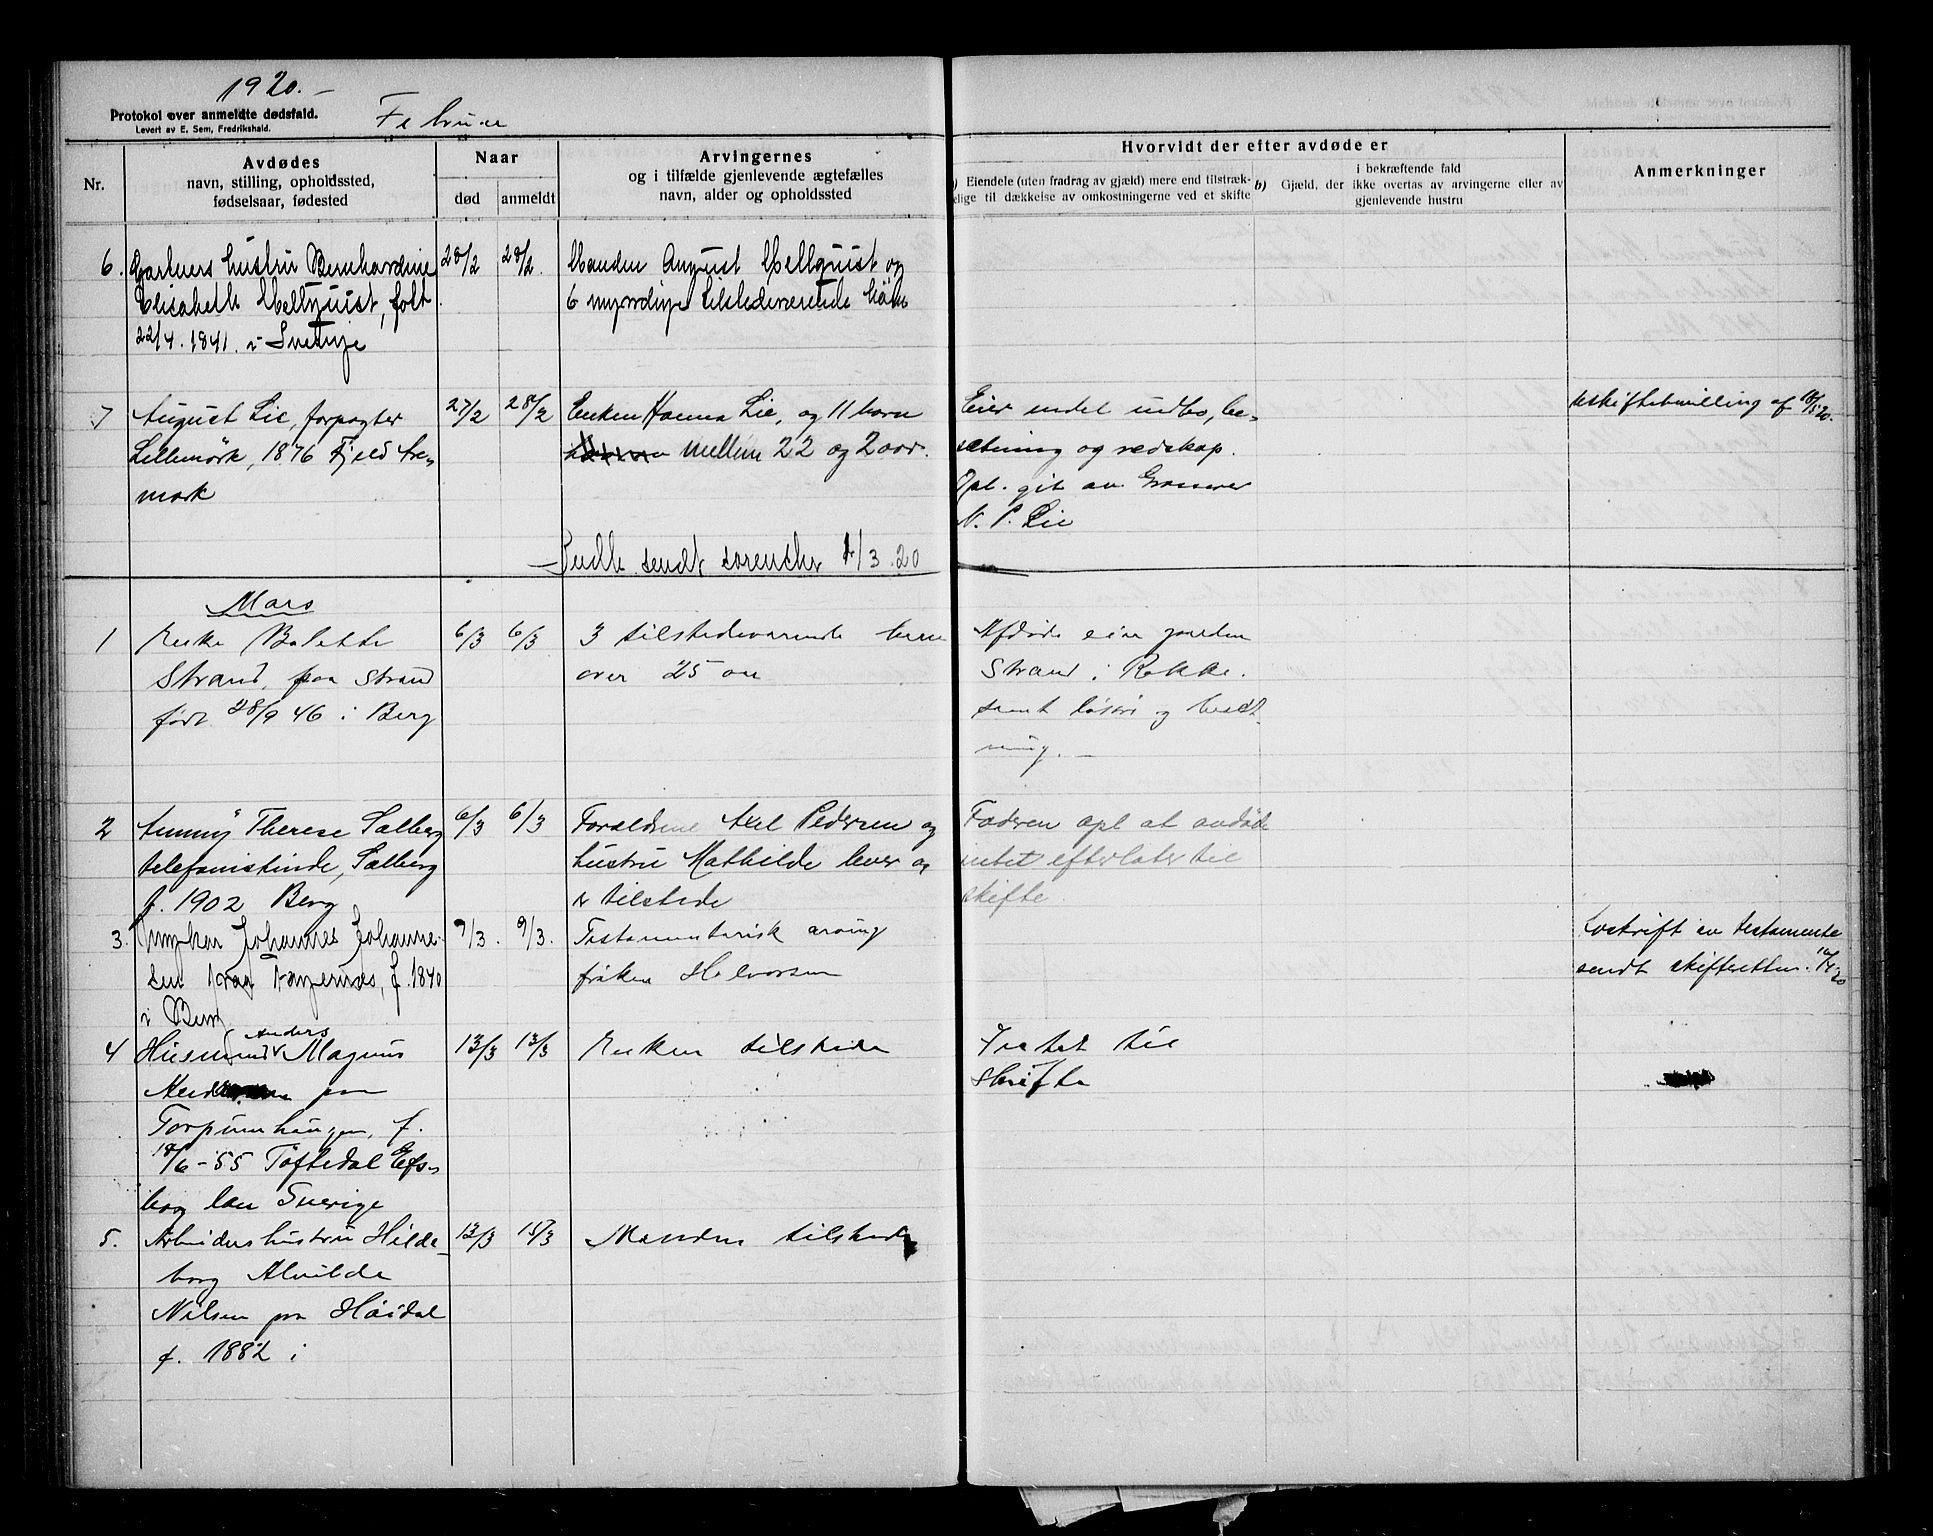 1920.-
Protokol over anmeldte dødsfald.
Levert av E. Sem, Fredrikshald.
Februar
Nr.
Avdødes
navn, stilling, opholdssted,
fødselsaar, fødested
Naar
død
anmeldt
Arvingernes
og i tilfælde gjenlevende ægtefælles
navn, alder og opholdssted
Hvorvidt der efter avdøde er
Eiendele (uten fradrag av gjæld) mere end tilstræk-
elige til dækkelse av omkostningerne ved et skifte
b) Gjæld, der
i bekræftende fald
ikke overtas av arvingerne eller av
gjenlevende hustru
Anmerkninger
6. Gartners hustru Bernhardine
Elisabeth Mellquist, født
22/4. 1841. i Sverige
28/2
28/2.
Manden August Mellquist og
6 myndige tilstedeværende børn
7 August Lie, forpagter
Lillemørk, 1876 Fjeld Are-
mark
27/2
28/2
Enken Hanna Lie, og 11 barn
mellem 22 og 2 aar.
Eier endel indbo, be-
sætning og redskap.
Opl. git av Grosserer
N. P. Lie
Uskiftebevilling af 18/5 20.
Indb. sendt sorenskr 1/3.20
Mars
1 Enke Bolette
Strand, paa Strand
født 28/9 46 i Berg
6/3
6/3
3 tilstedeværende børn
over 25 aar
Afdøde eier gaarden
Strand i Rokke.
samt løsøre og besæt
ning.-
2 Ammy Therese Solberg
telefonistinde, Solberg
f. 1902 Berg
6/3
6/3
Forældrene Axel Pedersen og
hustru Mathilde lever og
er tilstede
Faderen opl at avdøde
intet efterlater til
skifte
3. Ungkar Johannes Johanne
sen Krag Fagernæs, f. 1840
i Berg
9/3.
9/3.
Testamentarisk arving
frøken Halvorsen
Avskrift av testamente
sendt skifteretten. 10/4 20
4 Husmand Anders Magnus
paa
Torpumhaugen, f.
18/6-55 Töftedal Elfs-
borg län Sverige
13/3
13/3
Enken tilstede
Intet til
Skifte
5. Arbeiders hustru Hilde-
borg Alvilde
Nilsen paa Høidal
f. 1882 i
13/3
15/3
Manden tilstede